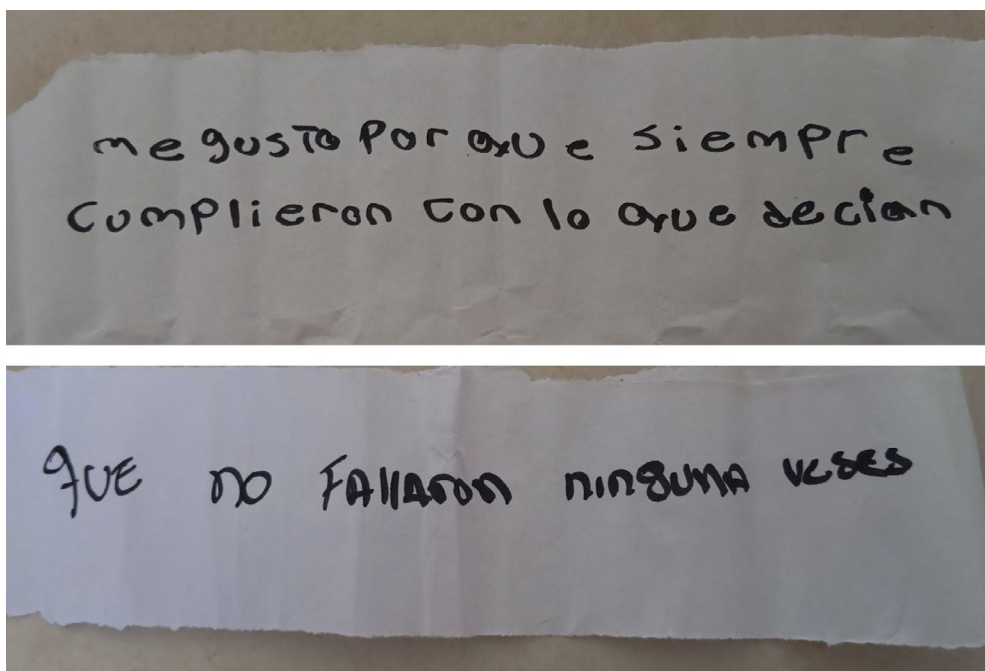 me gusto Por que siempre
cumplieron con lo que decian
que no FAllaron ninguna veses